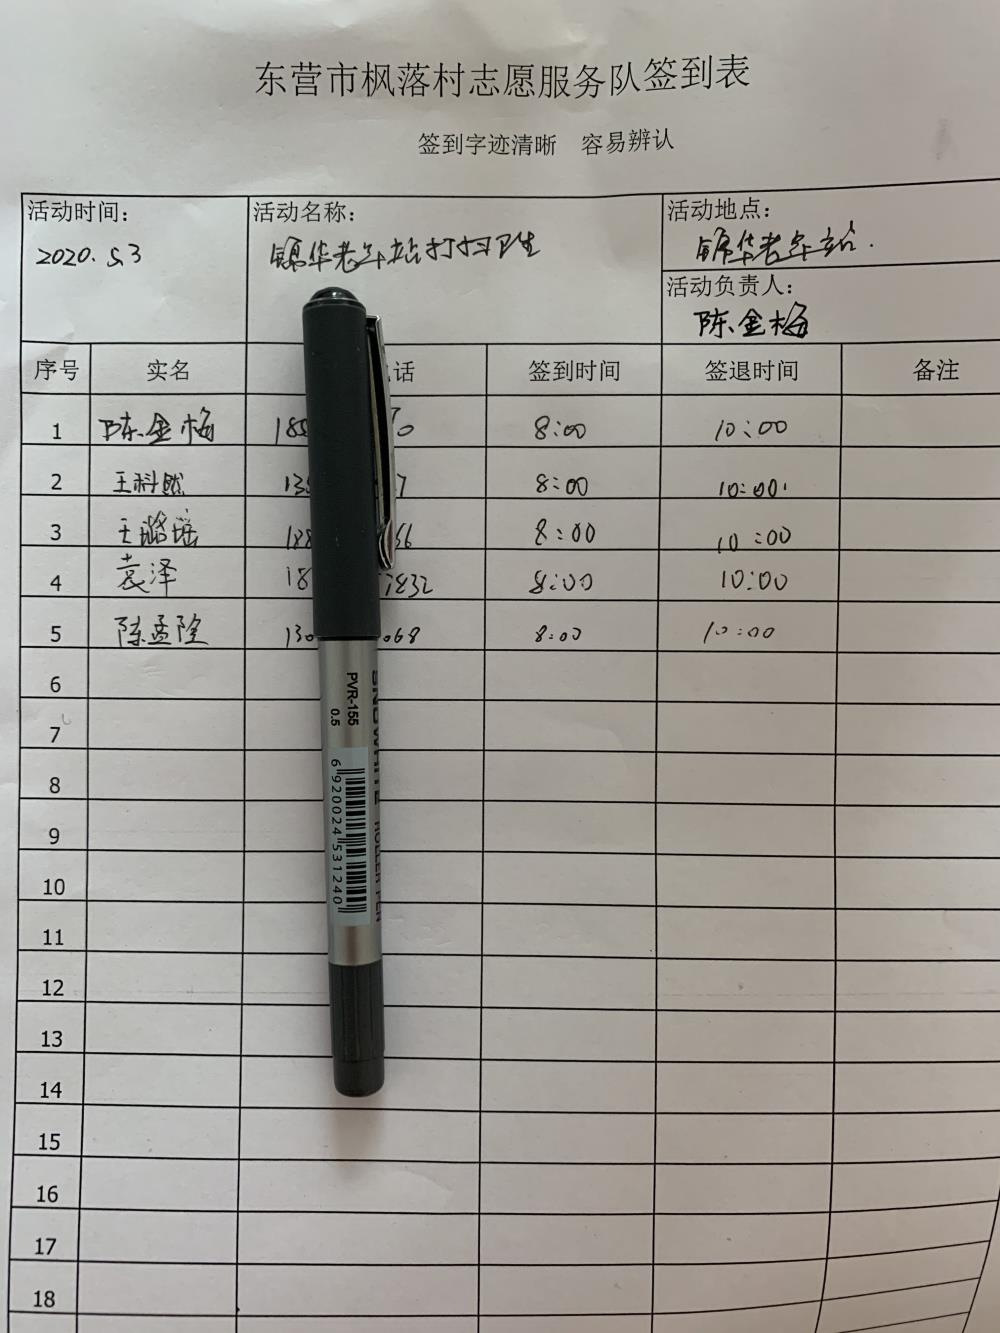 东营市枫落村志愿服务队签到表
签到字迹清晰 容易辨认
活动时间: 活动名称: 活动地点:
2020.5.3 锦华老年站打扫卫生 锦华老年站.
活动负责人:
陈金梅
序号 实名 话 签到时间 签退时间 备注
1 陈金梅 188 0 8:00 10:00
2 王科然 13 7 8:00 10:00
3 王璐瑶 188 66 8:00 10:00
4 袁泽 18 7832 8:00 10:00
5 陈孟隆 130 068 8:00 10:00
6
7
8
9
10
11
12
13
14
15
16
17
18
PVR-155
0.5
SNOWHITE ROLLER PEN
6920024531240